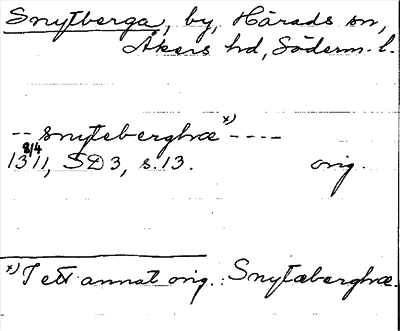 Snytberga, by, Härads sn,
Åkers hd, Söderm. l.
-- snyteberghæ x) ----
13 8/4 11, SD 3, s. 13. orig.
x) I ett annat orig.: Snytæberghæ.